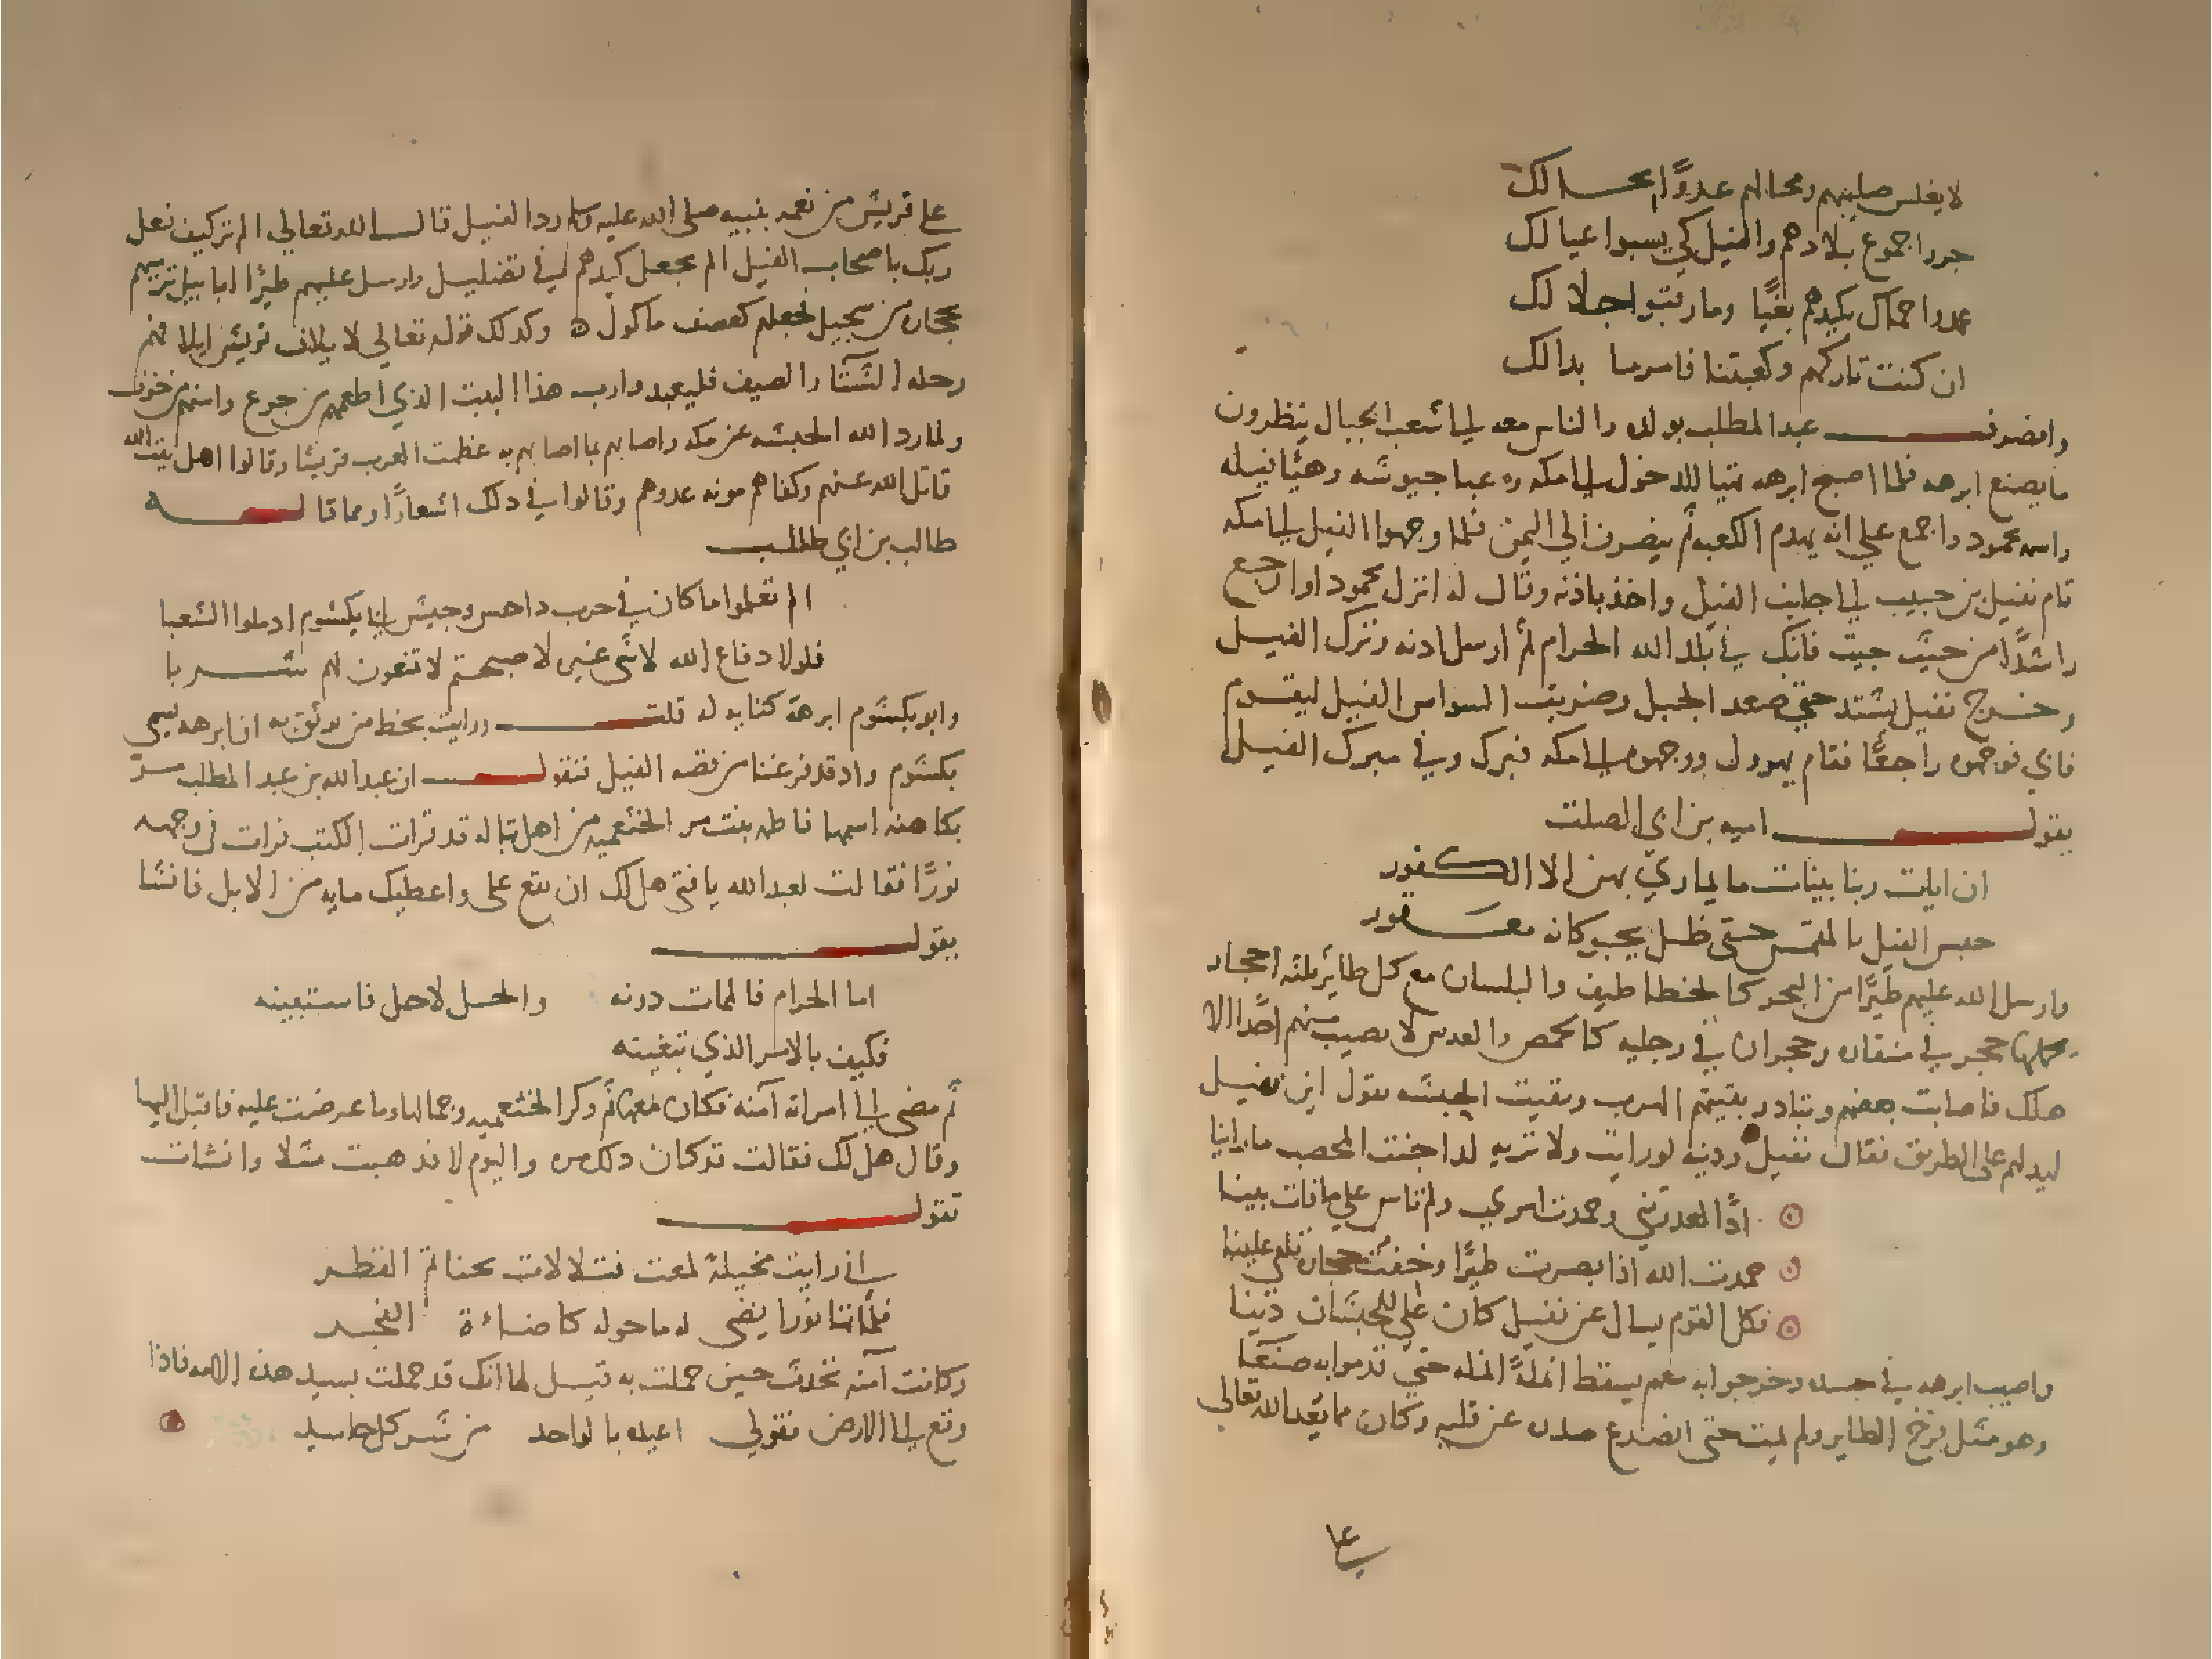 لا يغلبن صليبهم ومحالهم عدوًا محالك
جروا جموع بلادهم والفيل كي يسبوا عيالك
عمدوا حماك بكيدهم بغيًا وما رقبوا جلالك
ان كنت تاركهم وكعبتنا فامر ما بدا لك
وانصرف عبد المطلب بولده والناس معه الى شعب الجبال ينظرون
ما يصنع ابرهه فلما اصبح ابرهه تهيا للدخول الى مكه وعبا جيوشه وهيا فيله
واسمه محمود واجمع على انه يهدم الكعبه ثم ينصرف الى اليمن فلما وجهوا الفيل الى مكه
قام نفيل بن حبيب الى جانب الفيل واخذ باذنه وقال له انزل محمود او ارجع
راشدًا من حيث جيت فانك في بلد الله الحرام ثم ارسل اذنه ونزك الفيل
وخرج نفيل يشتد حتى صعد الجبل وضربت السواس الفيل ليقوم
فابي فوجهوه راجعًا فقام يهرول ووجهوه الى مكه فبرك وفي مبرك الفيل
يقول اميه بن ابي الصلت
ان ايات ربنا بينات ما يماري بهن الا الكفور
حبس الفيل بالمغمس حتى ظل يحبو كانه معقور
وارسل الله عليهم طيرًا من البحر كالخطاطيف والبلسان مع كل طاير ثلثه احجار
حجر في منقاره وحجران في رجليه كالحمص والعدس لا تصيب منهم احدًا الا
هلك فاصابت بعضهم وتبادر بقيتهم الهرب وبقيت الحبشه تقول اين نفيل
ليدلهم على الطريق فقال نفيل ردينه لو رايت ولا تريه لدا جنب المحصب ما راينا
اذًا لعذرتني وحمدت امري ولم تاس على ما فات بينا
حمدت الله اذا بصرت طيرًا وخفت حجاره تلقى علينا
فكل القوم يسال عن نفيل كان علي للحبشان دينا
واصيب ابرهه في جسده وخرجوا به معهم يسقط انملةً انمله حتى قدموا به صنعا
وهو مثل فرخ الطاير ولم يمت حتى انصدع صدره عن قلبه وكان مما يعد الله تعالى
على قريش من نعمه بنبيه صلى الله عليه وسلم رد الفيل قال الله تعالى الم تر كيف فعل
ربك باصحاب الفيل الم يجعل كيدهم في تضليل وارسل عليهم طيرًا ابابيل ترميهم
بحجاره من سجيل فجعلهم كعصف ماكول ه وكذلك قوله تعالى لايلاف قريش ايلافهم
رحله الشتا والصيف فليعبدوا رب هذا البيت الذي اطعمهم من جوع وامنهم من خوف
ولما رد الله الحبشه عن مكه واصابهم بما اصابهم به عظمت العرب قريشا وقالوا اهل بيت الله
قاتل الله عنهم وكفاهم مونه عدوهم وقالوا في ذلك اشعارًا ومما قاله
طالب بن ابي طالب
الم تعلموا ما كان في حرب داحس وجيش ابي يكسوم اذ ملوا الشعبا
فلولا دفاع الله لا شى غيره لاصبحتم لا تمنعون لهم شربا
وابو يكسوم ابرهة كناية له قلت ورايت بخط من يوثق به ان ابرهه يسمى
يكسوم واذ قد فرغنا من قصه الفيل فنقول ان عبد الله بن عبد المطلب مر
بكاهنه اسمها فاطمه بنت مر الخثعميه من اهل تباله قد قرات الكتب فرات في وجهه
نورًا فقالت لعبد الله يا فتى هل لك ان تقع على واعطيك مايه من الابل فانشا
يقول
اما الحرام فالممات دونه والحل لا حل فاستبينه
فكيف بالامر الذي تبغينه
ثم مضى الى امراته آمنه فكان معها ثم ذكر الخثعميه وجمالها وما عرضت عليه فاقبل اليها
وقال هل لك فقالت قد كان ذلك مره واليوم لا فذهبت مثلا وانشات
تقول
اني رايت مخيلة لمعت فتلالات بحناتم القطر
فلماتها نورا يضى له ما حوله كاضاءة الفجر
وكانت آمنه تحدث حين حملت به قيل لها انك قد حملت بسيد هذه الامه فاذا
وقع الى الارض فقولي اعيذه بالواحد من شر كل حاسد